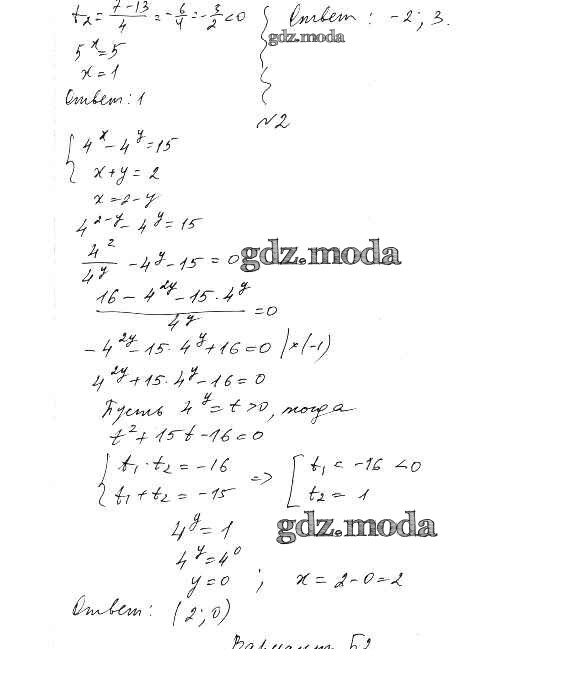 t₂ = (7-13)/4 = -6/4 = -3/2 < 0
5^x = 5
x = 1
Ответ: 1
Ответ: -2; 3.
gdz.moda
№2
{ 4^x - 4^y = 15
x + y = 2
x = 2 - y
4^(2-y) - 4^y = 15
4^2/4^y - 4^y - 15 = 0
gdz.moda
(16 - 4^(2y) - 15 · 4^y)/4^y = 0
-4^(2y) - 15 · 4^y + 16 = 0 | × (-1)
4^(2y) + 15 · 4^y - 16 = 0
Пусть 4^y = t > 0, тогда
t² + 15t - 16 = 0
{ t₁ · t₂ = -16 => [ t₁ = -16 < 0
t₁ + t₂ = -15 t₂ = 1
gdz.moda
4^y = 1
4^y = 4^0
y = 0 ; x = 2 - 0 = 2
Ответ: (2; 0)
Вариант Б2